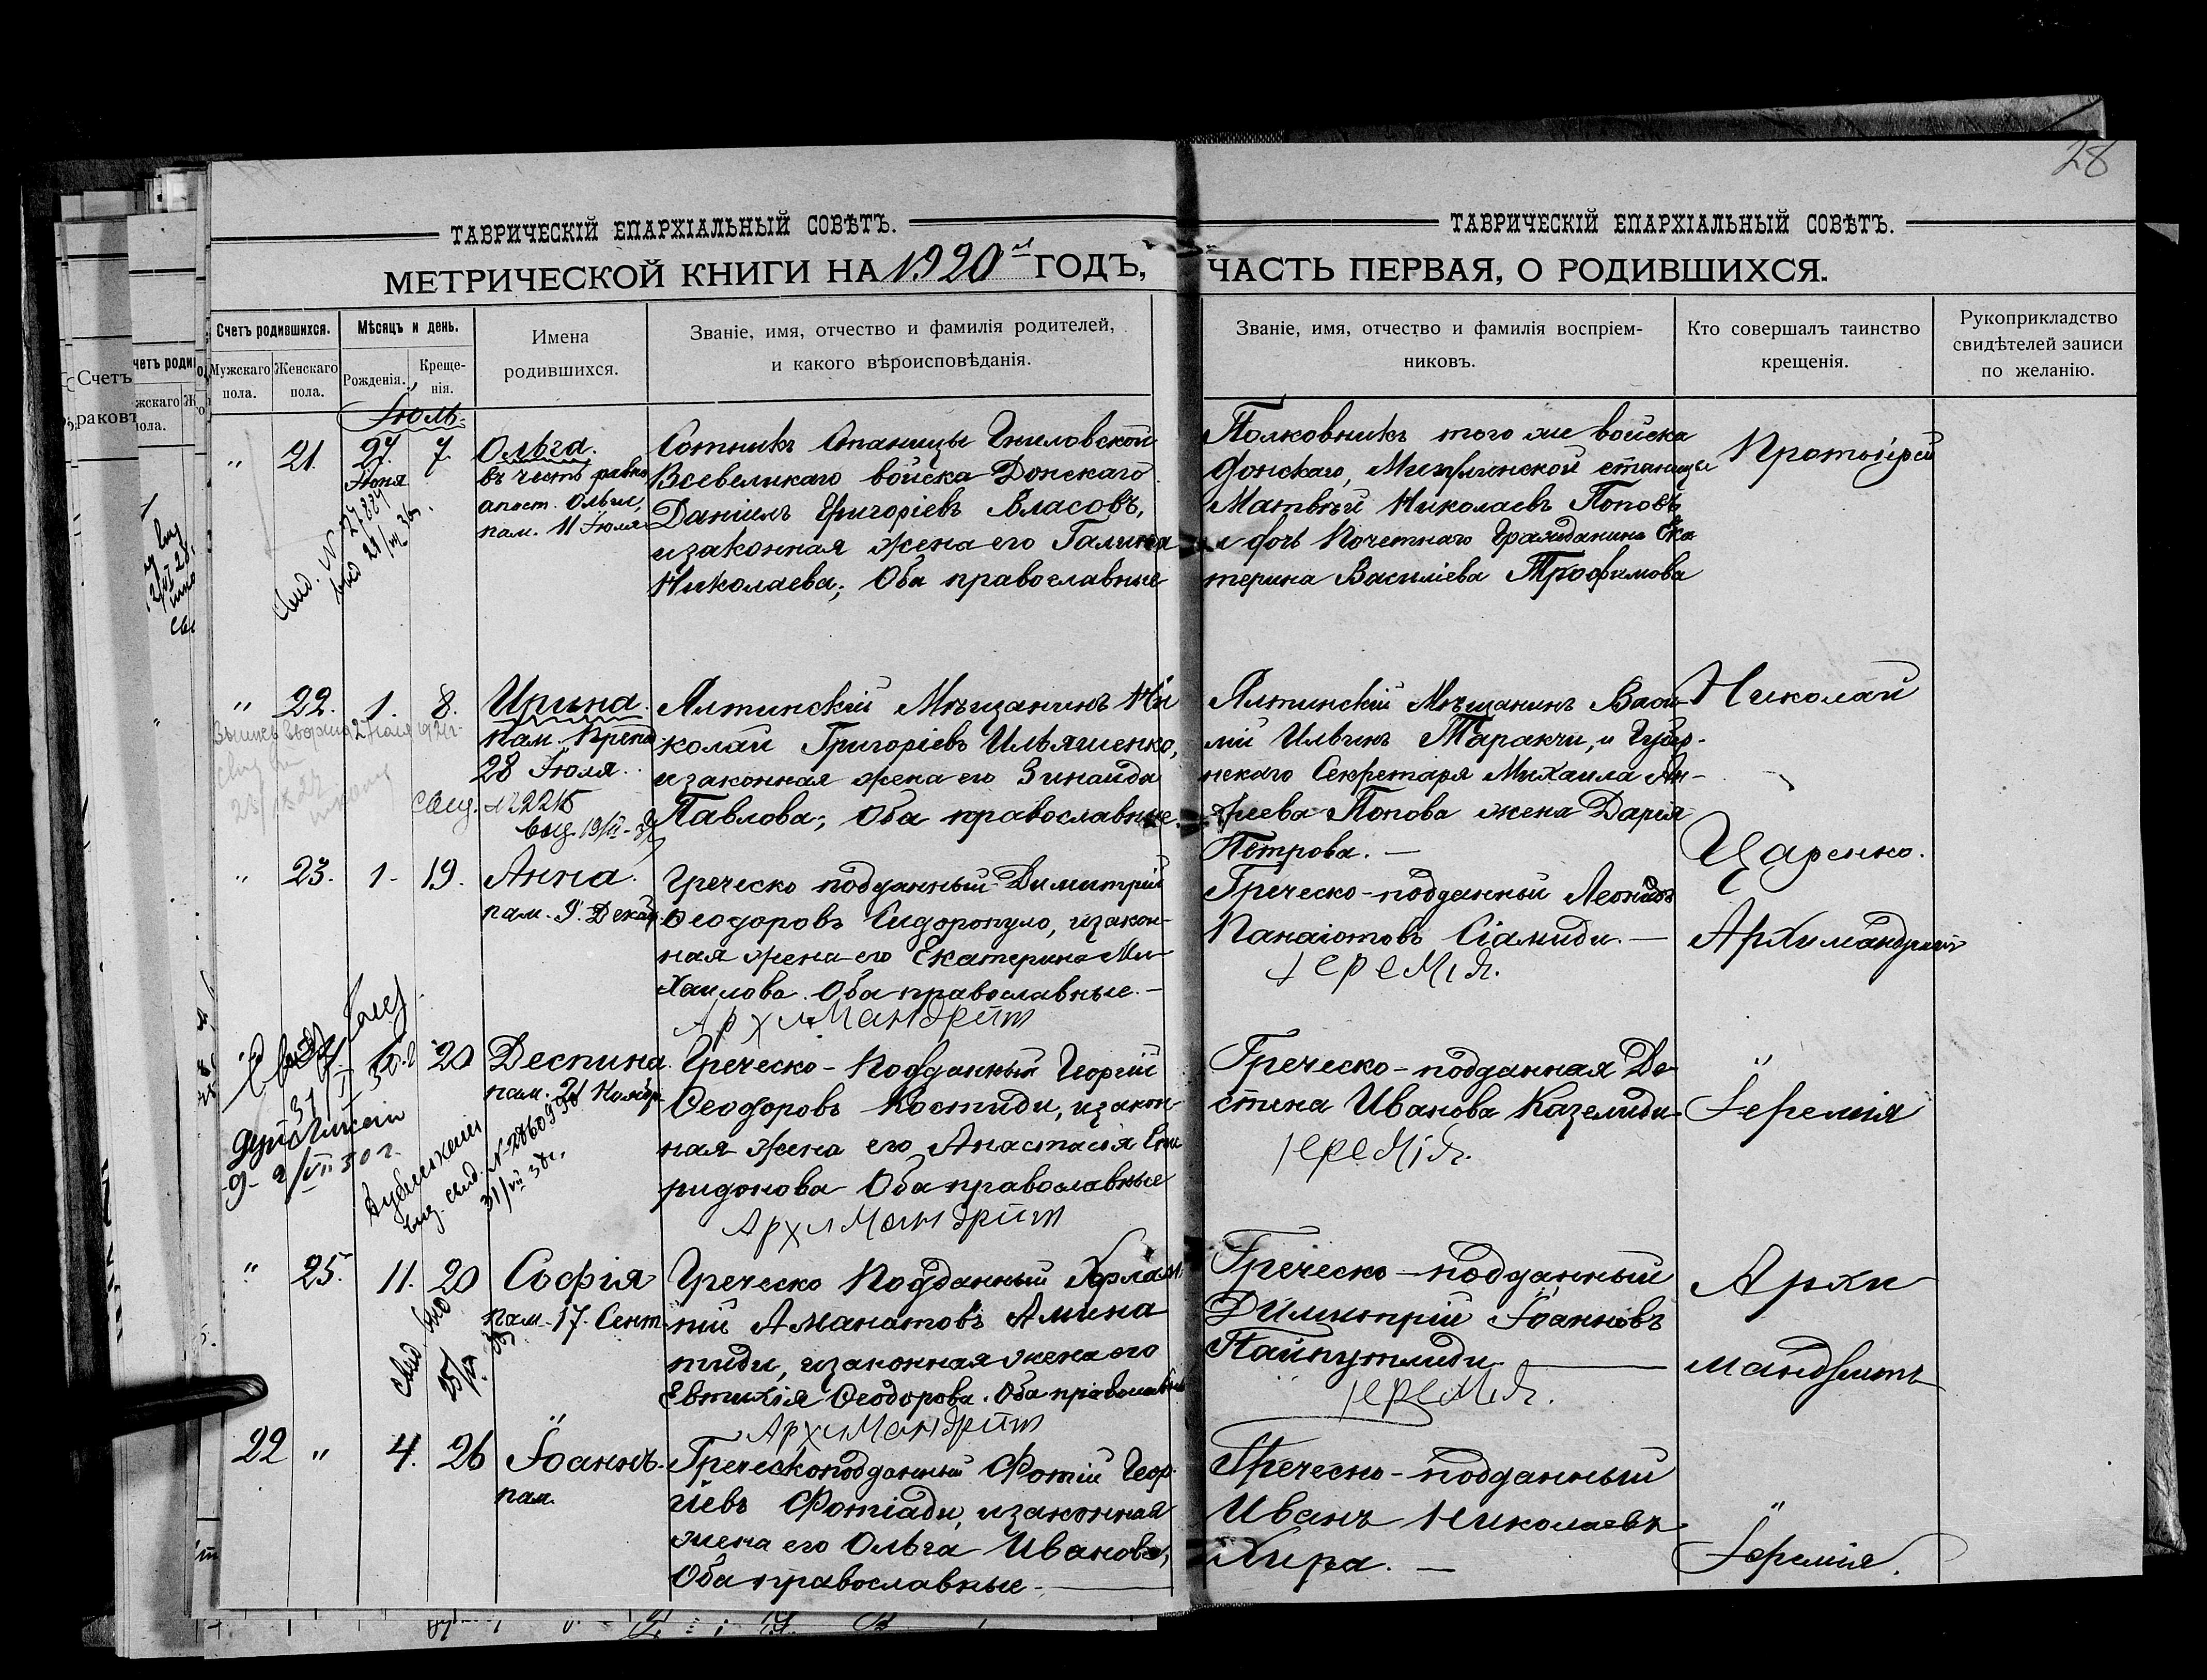 28
ТАВРИЧЕСКІЙ ЕПАРХІАЛЬНЫЙ СОВѢТЪ.
МЕТРИЧЕСКОЙ КНИГИ НА 1920й ГОДЪ,
Счетъ родившихся.
Мужскаго пола.
Женскаго пола.
Мѣсяцъ и день.
Рожденія.
Креще-
нія.
Имена
родившихся.
Званіе, имя, отчество и фамилія родителей,
и какого вѣроисповѣданія.
ТАВРИЧЕСКІЙ ЕПАРХІАЛЬНЫЙ СОВѢТЪ.
ЧАСТЬ ПЕРВАЯ, О РОДИВШИХСЯ.
Званіе, имя, отчество и фамилія воспріем-
никовъ.
Кто совершалъ таинство
крещенія.
Рукоприкладство
свидѣтелей записи
по желанію.
Іюль
" 21. 27. Іюня 7. Ольга.
въ честь равно
апост. Ольги,
пам. 11 Іюля
Сотникъ Станицы Гниловской
Всевеликаго войска Донскаго
Даніилъ Григоріевъ Власовъ,
и законная жена его Галина
Николаева; Оба православные
Полковникъ того же войска
Донскаго, станицы
Матвѣй Николаевъ Поповъ
и дочь Почетнаго Гражданина Ека
терина Василіева Трофимова
Протоіерей
" 22. 1. 8. Ирина.
28 Іюля.
Ялтинскій Мѣщанинъ Ни
колай Григоріевъ Ильяшенко,
и законная жена его Зинаида
Павлова; Оба православные.
Ялтинскій Мѣщанинъ Васи
лій Ильинъ Таракчи, и Губер-
нскаго Секретаря Михаила Ан-
дреева Попова жена Дарія
Петрова. —
Николай
Царенко.
" 23. 1. 19. Анна.
пам. 9. Декаб.
Греческо подданный Димитрій
Ѳеодоровъ Сидоропуло, и закон-
ная жена его Екатерина Ми-
хаилова. Оба православные. —
Архимандрит
Греческо-подданный Леонидъ
Панаіотовъ Сіамиди. —
Іеремія.
Архимандритъ
20 Деспина.
пам. 21 Нояб.
Греческо-Подданный Георгій
Ѳеодоровъ Костиди, и закон-
ная жена его Анастасія Спи
ридонова Оба православные
Архимандрит
Греческо-подданная Де
спина Иванова Казелиди
Іеремія.
Іеремія
" 25. 11. 20 Софія
пам. 17. Сент.
Греческо Подданный Харлам
пій Аманатовъ Амина
тиди, и законная жена его
Евтихія Ѳеодорова. Оба православные
Архимандрит
Греческо-подданный
Димитрій Іоанновъ
Пайпутлиди —
Іеремія.
Архи
мандритъ
22 " 4. 26 Іоаннъ.
пам.
Греческоподданный Фотій Геор-
гіевъ Фотіади, и законная
жена его Ольга Иванова,
Оба православные. —
Греческо-подданный
Иванъ Николаевъ
Хира. —
Іеремія.